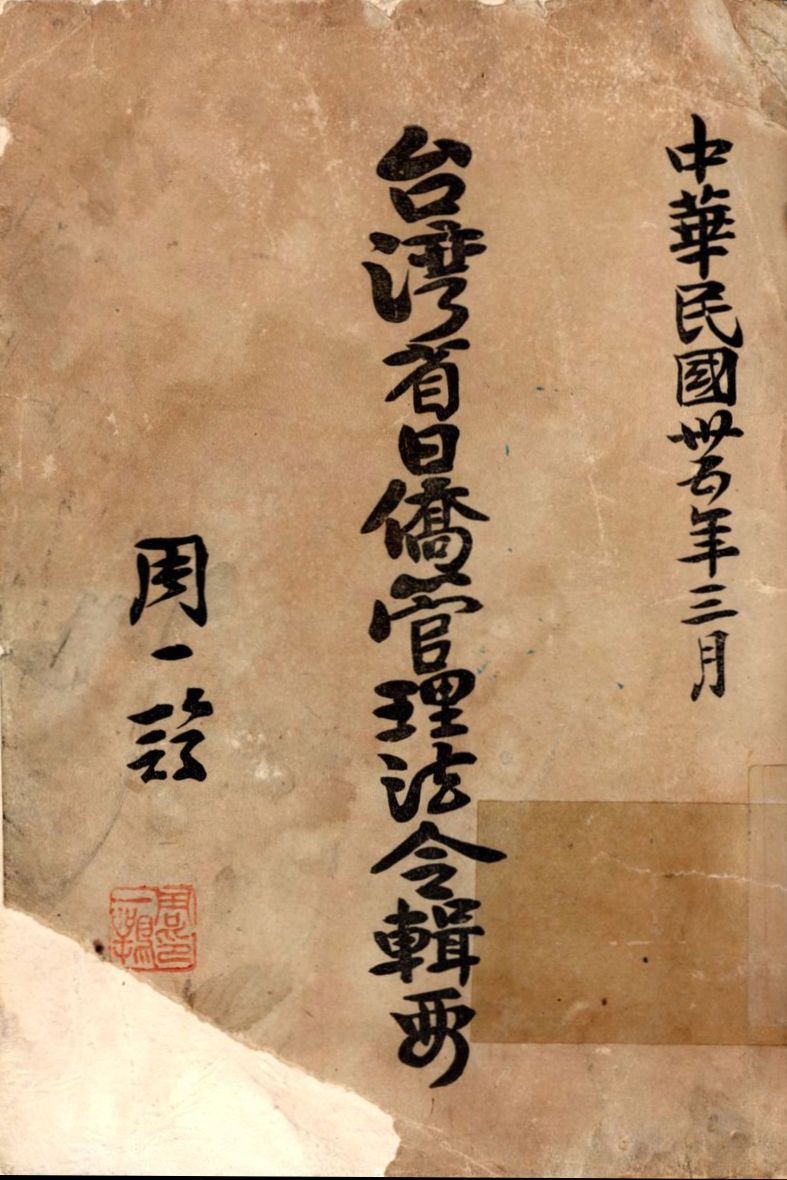 中華民國卅五年三月
台湾省日僑管理法令輯要
周一鶚
周印
一鶚